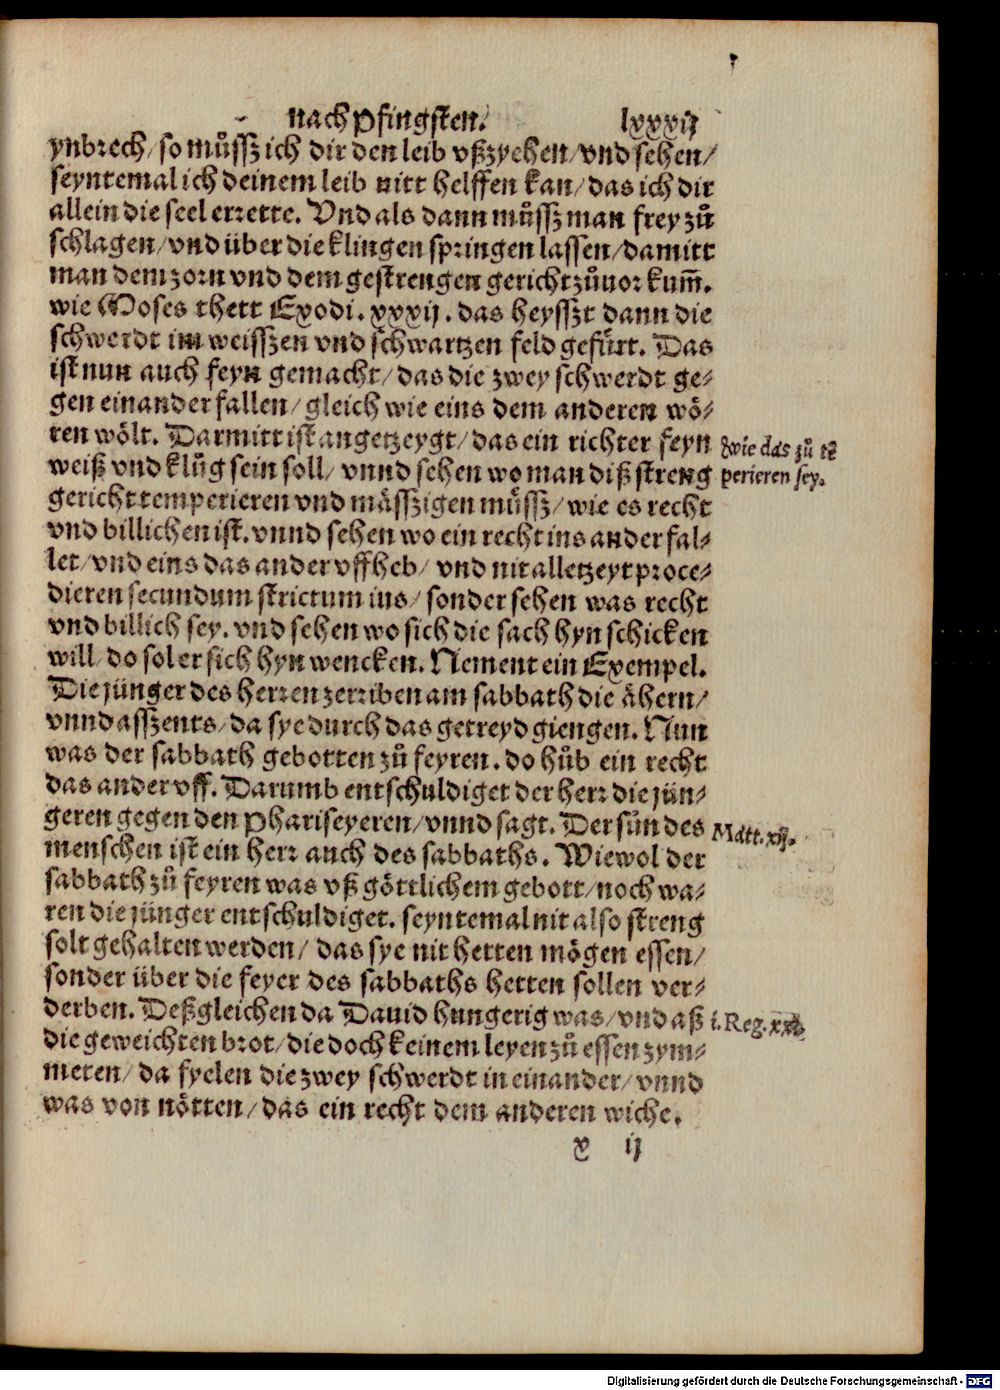 nach Pfingsten. lxxxij
ynbrech/ so můssz ich dir den leib vßzyehen/ vnd sehen/
seyntemal ich deinem leib nitt helffen kan/ das ich dir
allein die seel errette. Vnd als dann můssz man frey zů
schlagen/ vnd über die klingen springen lassen/ damitt
man dem zorn vnd dem gestrengen gericht zůuor kum̄.
wie Moses thett Exodi. xxxij. das heysszt dann die
schwerdt im weisszen vnd schwartzen feld gefürt. Das
ist nun auch feyn gemacht/ das die zwey schwerdt ge⸗
gen einander fallen/ gleich wie eins dem anderen wö⸗
ren wölt. Darmitt ist angetzeygt/ das ein richter feyn
weiß vnd klůg sein soll/ vnnd sehen wo man diß streng
gericht temperieren vnd mässzigen můssz/ wie es recht
vnd billichen ist. vnnd sehen wo ein recht ins ander fal⸗
let/ vnd eins das ander vffheb/ vnd nit alletzeyt proce⸗
dieren secundum strictum ius/ sonder sehen was recht
vnd billich sey. vnd sehen wo sich die sach hyn schicken
will/ do sol er sich hyn wencken. Nement ein Exempel.
Die jünger des herren zerriben am sabbath die ähern/
vnnd asszents/ da sye durch das getreyd giengen. Nun
was der sabbath gebotten zů feyren. do hůb ein recht
das ander vff. Darumb entschuldiget der herr die jün⸗
geren gegen den Phariseyeren/ vnnd sagt. Der sůn des
menschen ist ein herr auch des sabbaths. Wiewol der
sabbath zů feyren was vß göttlichem gebott/ noch wa⸗
ren die jünger entschuldiget. seyntemal nit also streng
solt gehalten werden/ das sye nit hetten mögen essen/
sonder über die feyer des sabbaths hetten sollen ver⸗
derben. Deßgleichen da Dauid hungerig was/ vnd aß
die geweichten brot/ die doch keinem leyen zů essen zym⸗
meten/ da fyelen die zwey schwerdt in einander/ vnnd
was von nötten/ das ein recht dem anderen wiche.
x ij
Wie das zů tē
perieren sey.
Matt. xij.
i. Reg. xxi.
Digitalisierung gefördert durch die Deutsche Forschungsgemeinschaft - DFG